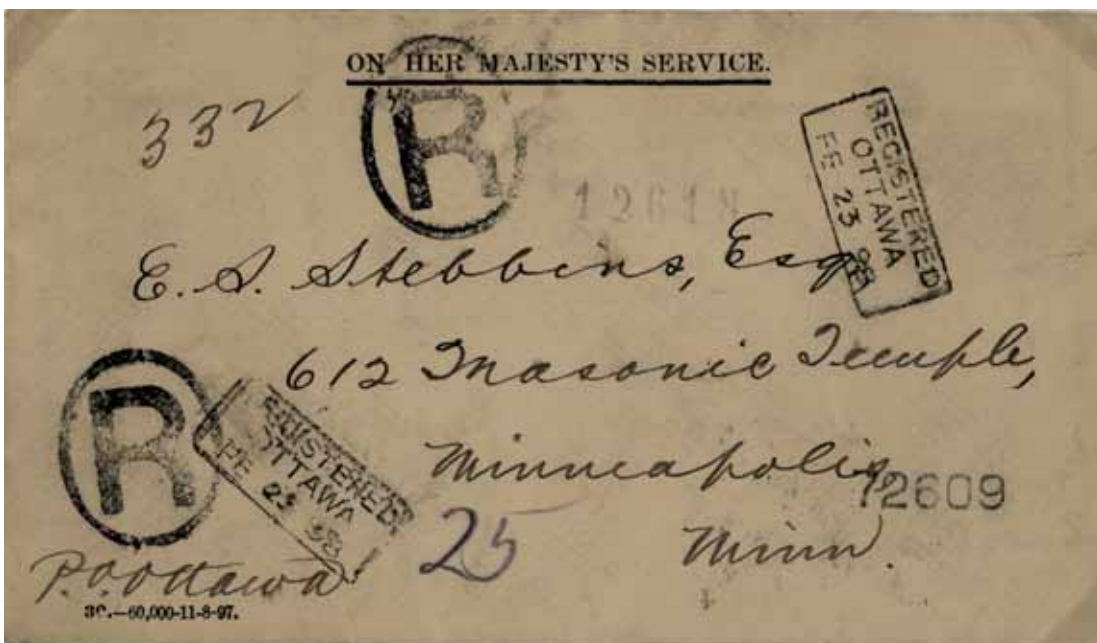 ON HER MAJESTY'S SERVICE.
332
R
REGISTERED
OTTAWA
FE 23 98
12618
E. S. Stebbins, Esq
612 Masonic Temple,
Minneapolis,
12609
Minn.
R
REGISTERED
OTTAWA
FE 23 98
25
P.O. Ottawa
60,000-11-8-97.